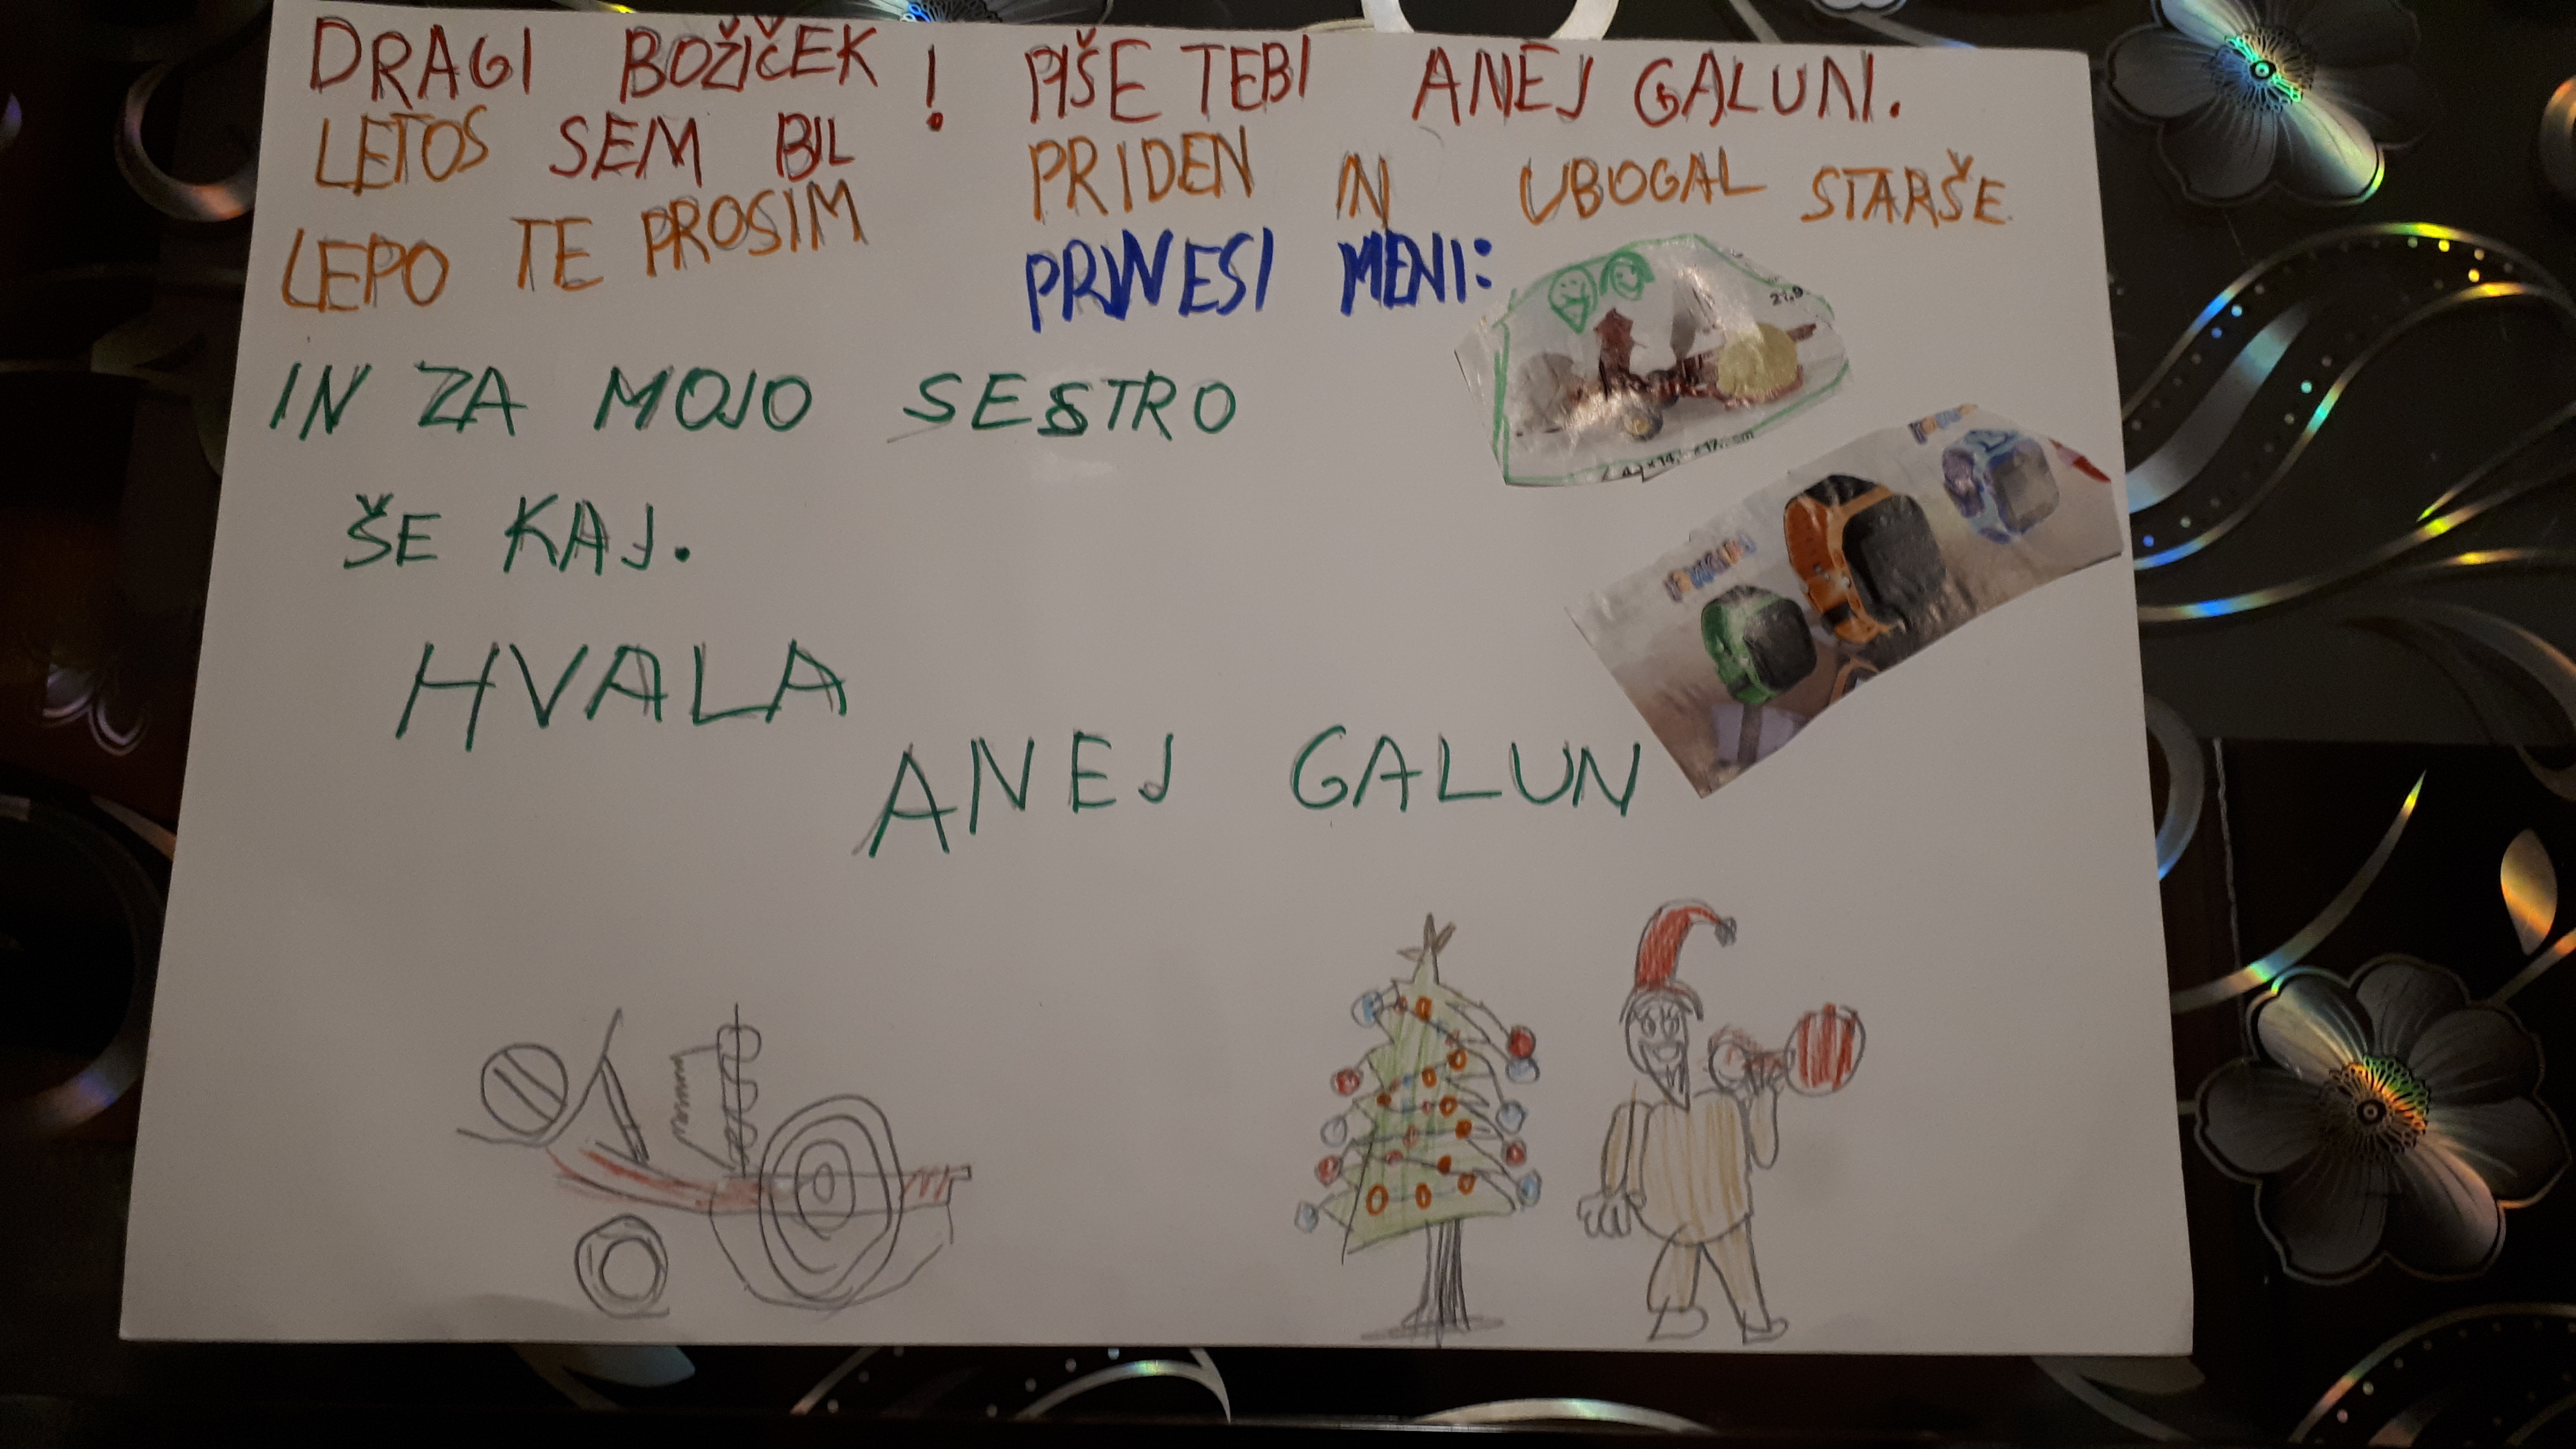 DRAGI BOŽIČEK ! PIŠE TEBI ANEJ GALUN.
LETOS SEM BIL PRIDEN IN UBOGAL STARŠE.
LEPO TE PROSIM PRINESI MENI:
IN ZA MOJO SESTRO
ŠE KAJ.
HVALA
ANEJ GALUN